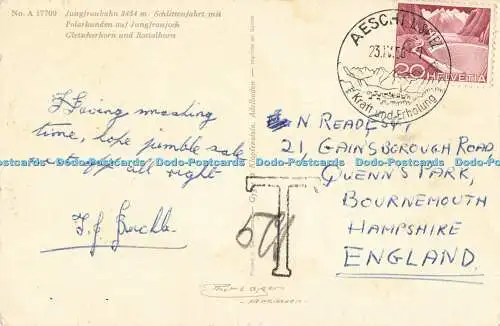 No. A 17700 Jungfraubahn 3454 m: Schlittenfahrt mit
Polarhunden auf Jungfraujoch
Gletscherhorn und Rottalhorn
AESCHI b. SPIEZ
23.IV.56
Kraft und Erholung
20 HELVETIA
Having smashing
time, hope jumble sale
went off all right
N READ ESQ
21, GAINSBOROUGH ROAD
QUENN'S PARK,
BOURNEMOUTH
HAMPSHIRE
ENGLAND.
T
Dodo-Postcards Dodo-Postcards Dodo-Postcards Dodo-Postcards Dodo-Postcards